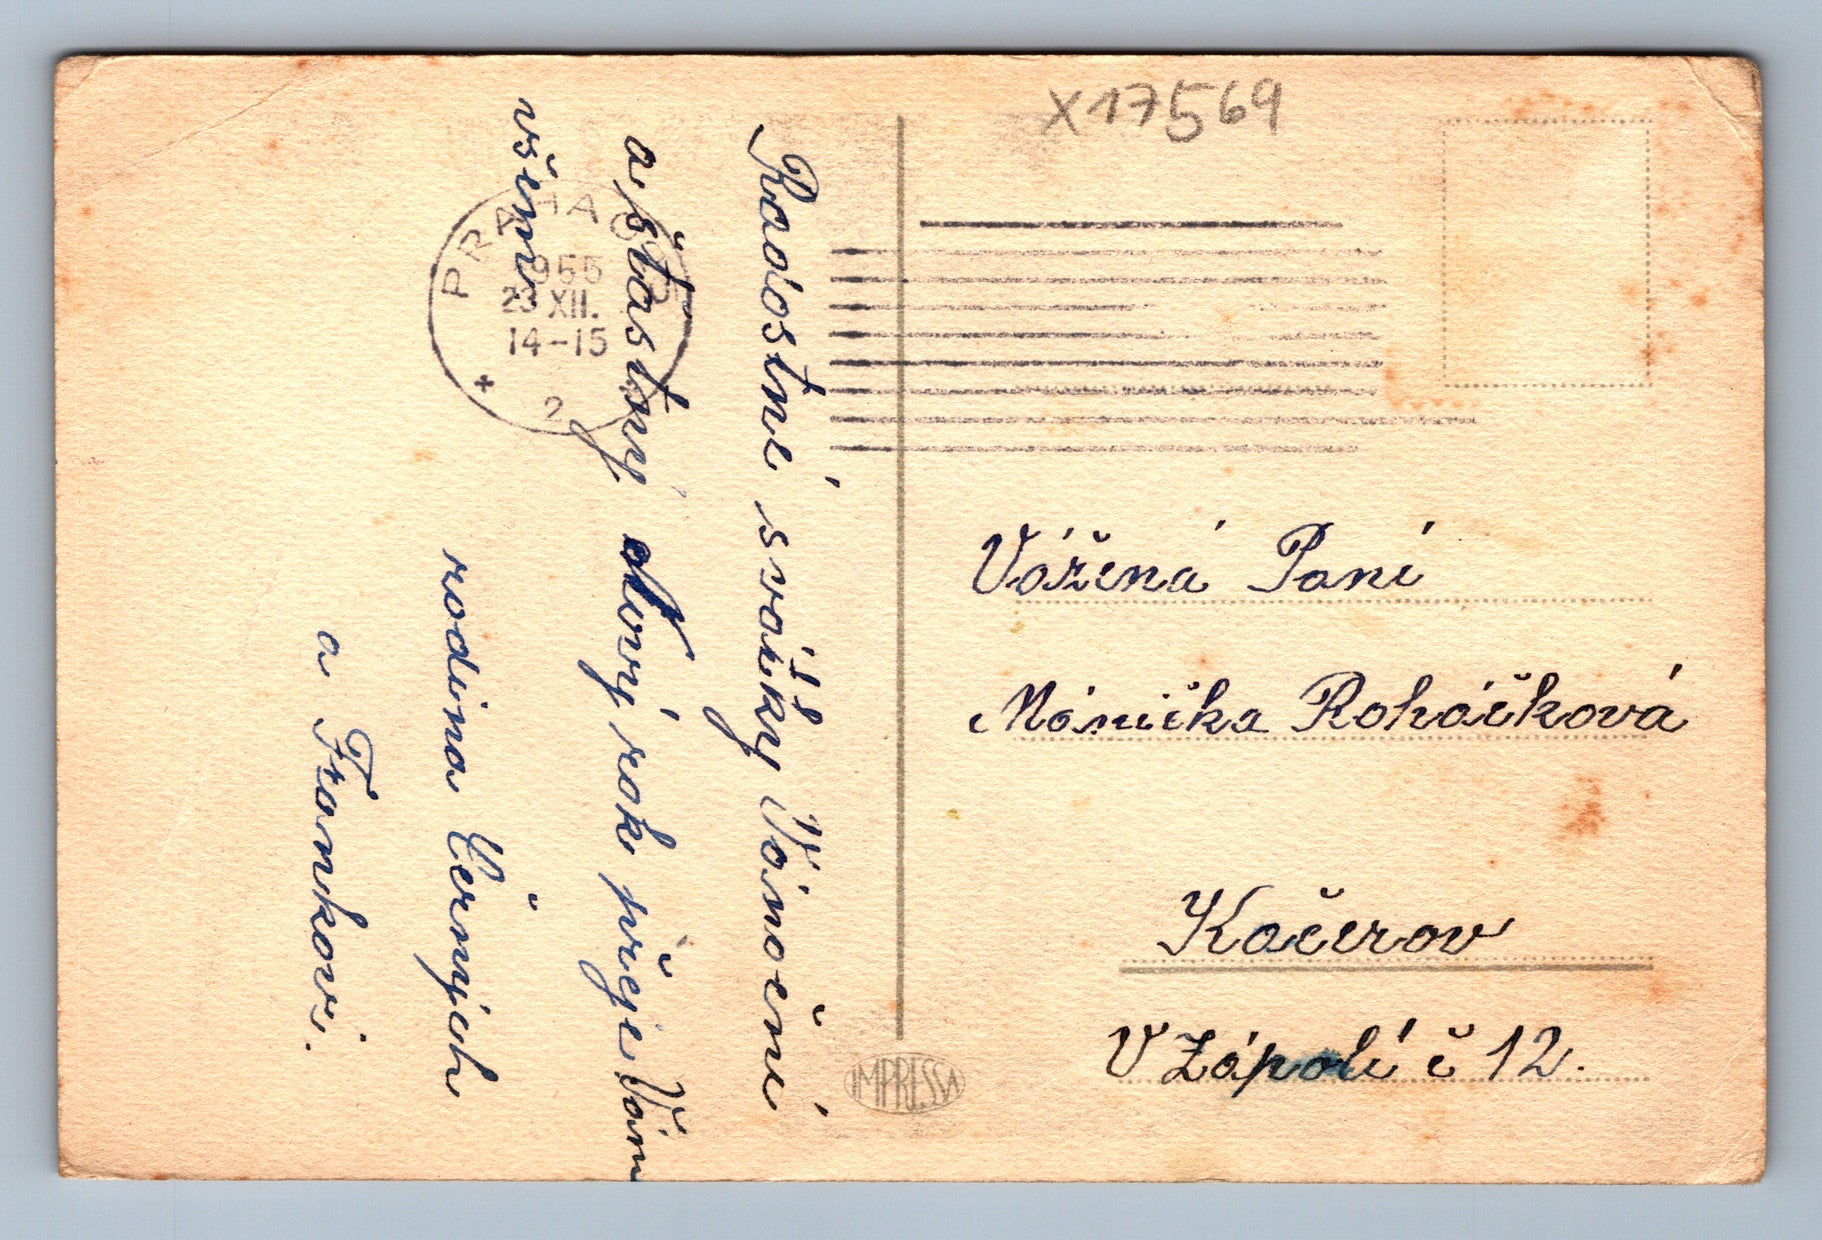 X17569
PRAHA
955
23 XII.
14-15
* 2
Radostné svátky Vánoční
a šťastný Nový rok přeje Vám
všem
rodina Černých
a Frankovi.
Vážená Paní
Mánička Roháčková
Kačerov
V Zápolí č 12.
IMPRESSA